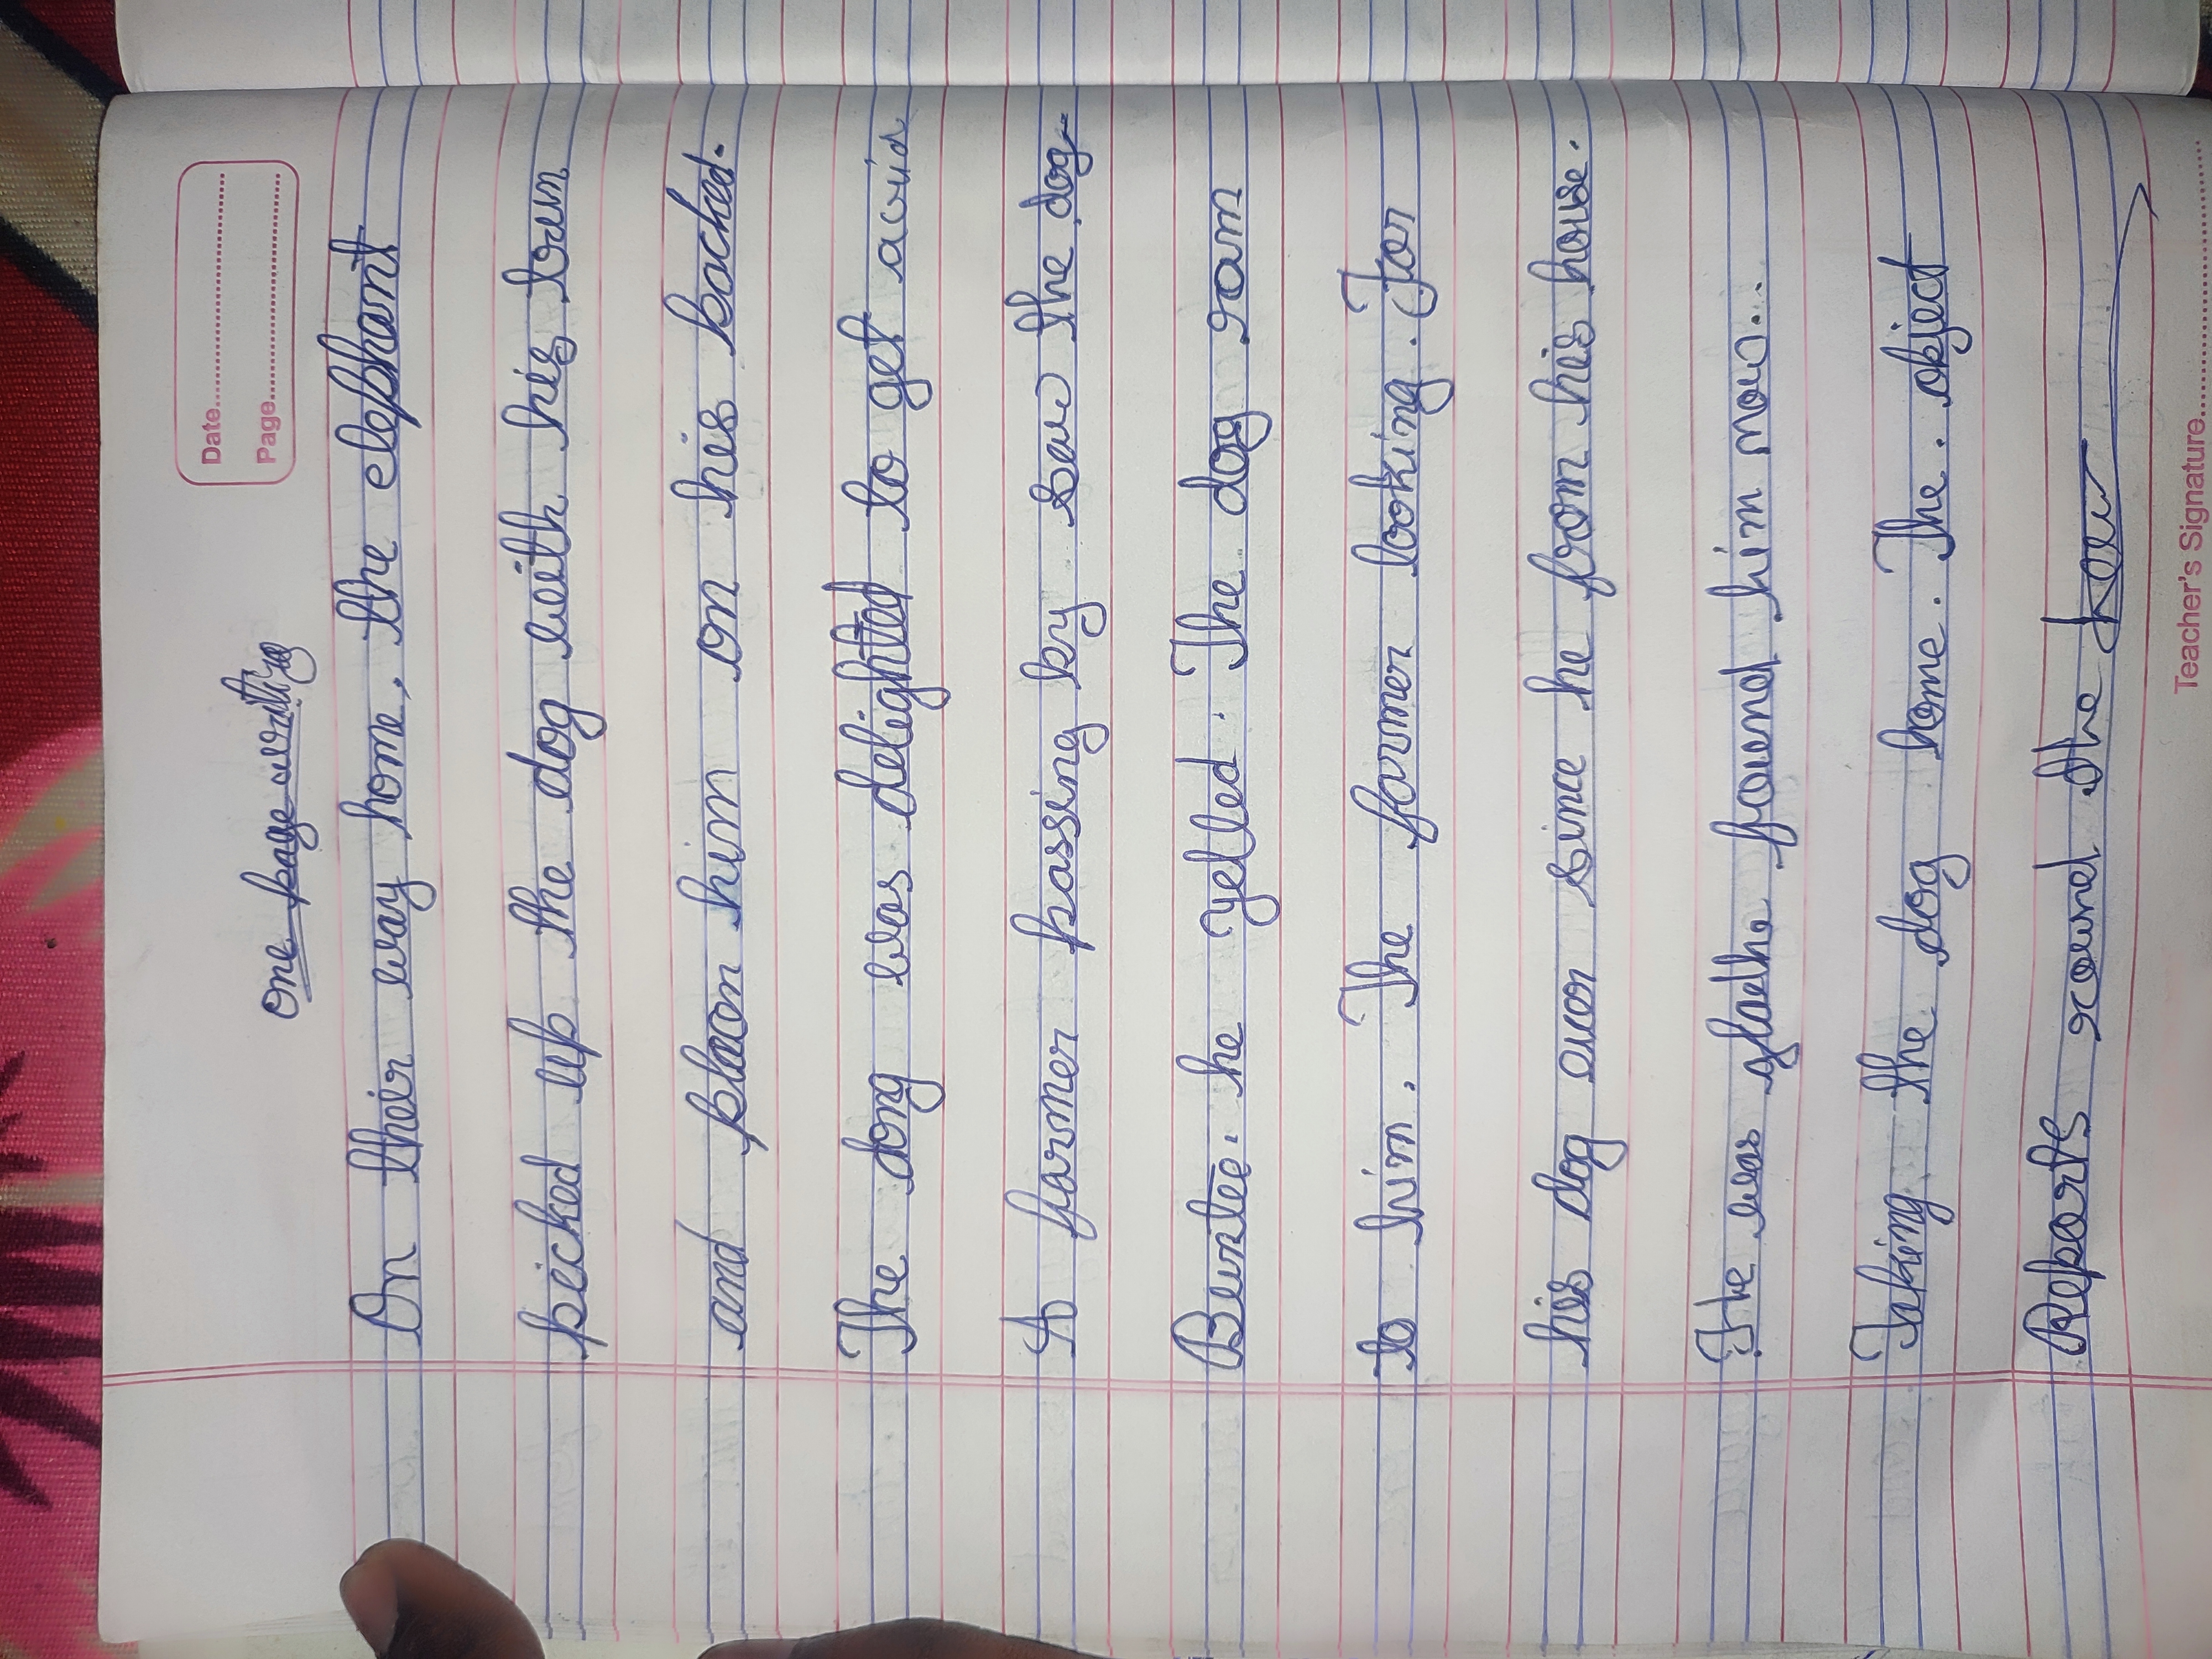 Date
Page
One page writing
On their way home, the elephant
picked up the dog with his
and him on his backed.
The dong was delighted to get
A farmer passing by saw the dog
he yelled. The dog ran
to him. The farmer looking. For
his dog ever since he from his house.
The was found him now...
Taking the dog home. The. object
Reports round the
Teacher's Signature